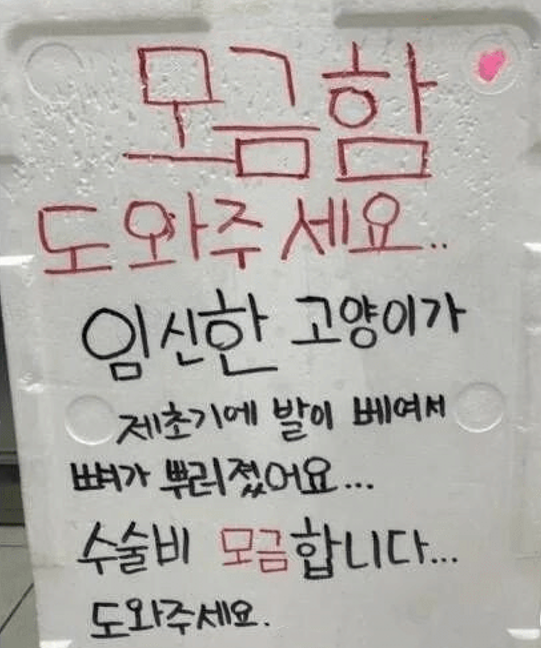 모금함
도와주세요..
임신한 고양이가
제초기에 발이 베여서
뼈가 뿌리졌어요...
수술비 모금합니다...
도와주세요.